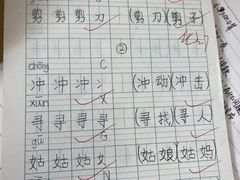 剪 剪 剪 (剪刀)(剪子)
②
chōng C
冲 冲 冲 (冲动)(冲击)
xún X
寻 寻 寻 寻 (寻找)(寻人)
gū G
姑 姑 姑 (姑娘)(姑妈)
N